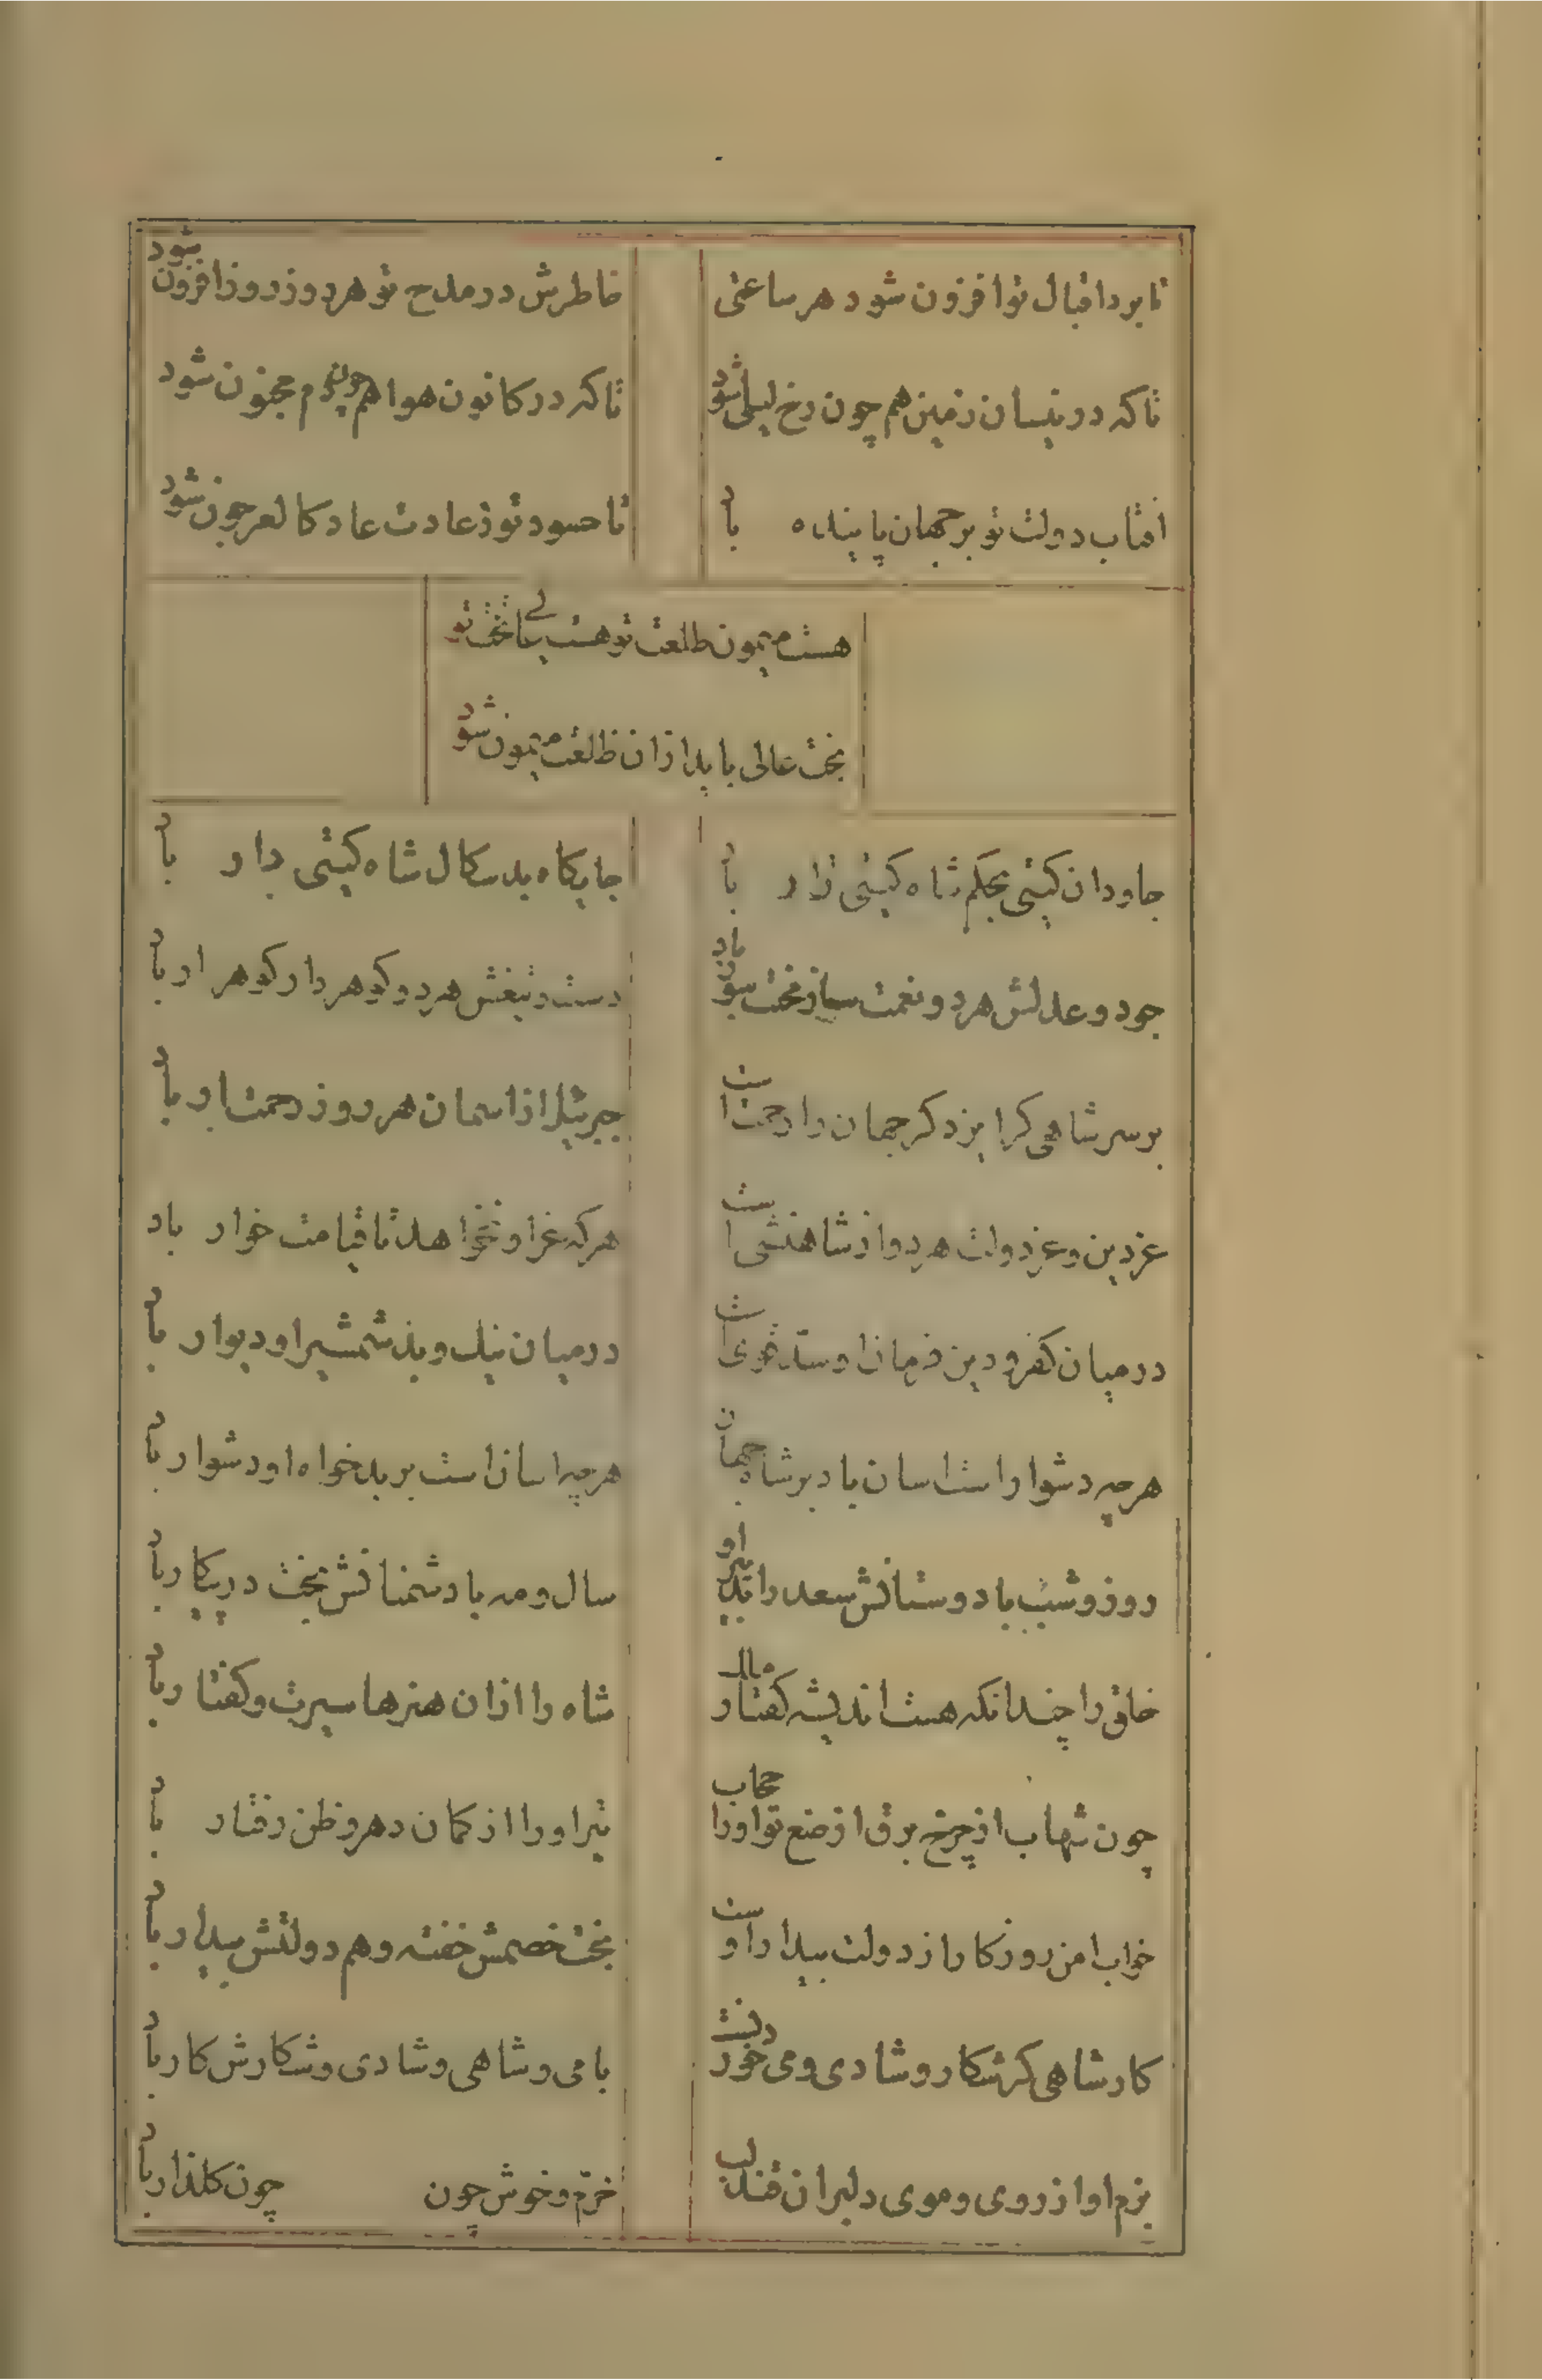 تا برد اقبال تو افزون شود هر ساعتی
خاطرش در مدح تو هر روز روز افزون شود
تا که در نیسان زمین هم چون رخ لیلی شود
تا که در کانون هوا هم چون دم مجنون شود
افتاب دولت تو بر جهان پاینده باد
تا حسود تو ز عادت عاد کالعرجون شود
هست میمون طلعت تو هست بی‌ما تخت تو
بخت عالی باید از ان طلعت میمون شود
جاودان کیتی بحکم شاه کیتی دار باد
جایکاه بدسکال شاه کیتی دار باد
جود و عدلش هر دو نعمت ساز و محنت سوز باد
دست و تیغش هر دو کوهر دار کوهر ار باد
بر سر شاهی کز ایزد کر جهان را رحمت است
جبرئیل از اسمان هر روز رحمت بار باد
عز دین و عز دولت هر دو از شاهنشی است
هر که عز او نخواهد تا قیامت خوار باد
در میان کفر و دین فرمان او سد قوی است
در میان نیک و بد شمشیر او دیوار باد
هر چه دشوار است اسان باد بر شاه جهان
هر چه اسان است بر بدخواه او دشوار باد
روز و شب با دوستانش سعد را تدبیر او
سال و مه با دشمنانش بخت در پیکار باد
خلق را چندانکه هست اندیشه کفتار
شاه را از ان هنرها سیرت و کفتار باد
چون شهاب از چرخ برق از ضع تو او را حجاب
تیر او را از کمان دهر و ظن رفتار باد
خواب امن روزکار از دولت بیدار اوست
بخت خصمش خفته و هم دولتش بیدار باد
کار شاهی کر شکار و شادی و می خوردنست
با می و شاهی و شادی و شکارش کار باد
بزم او از روی و موی دلبران قندلب
خرم و خوش چون چون کلذار باد